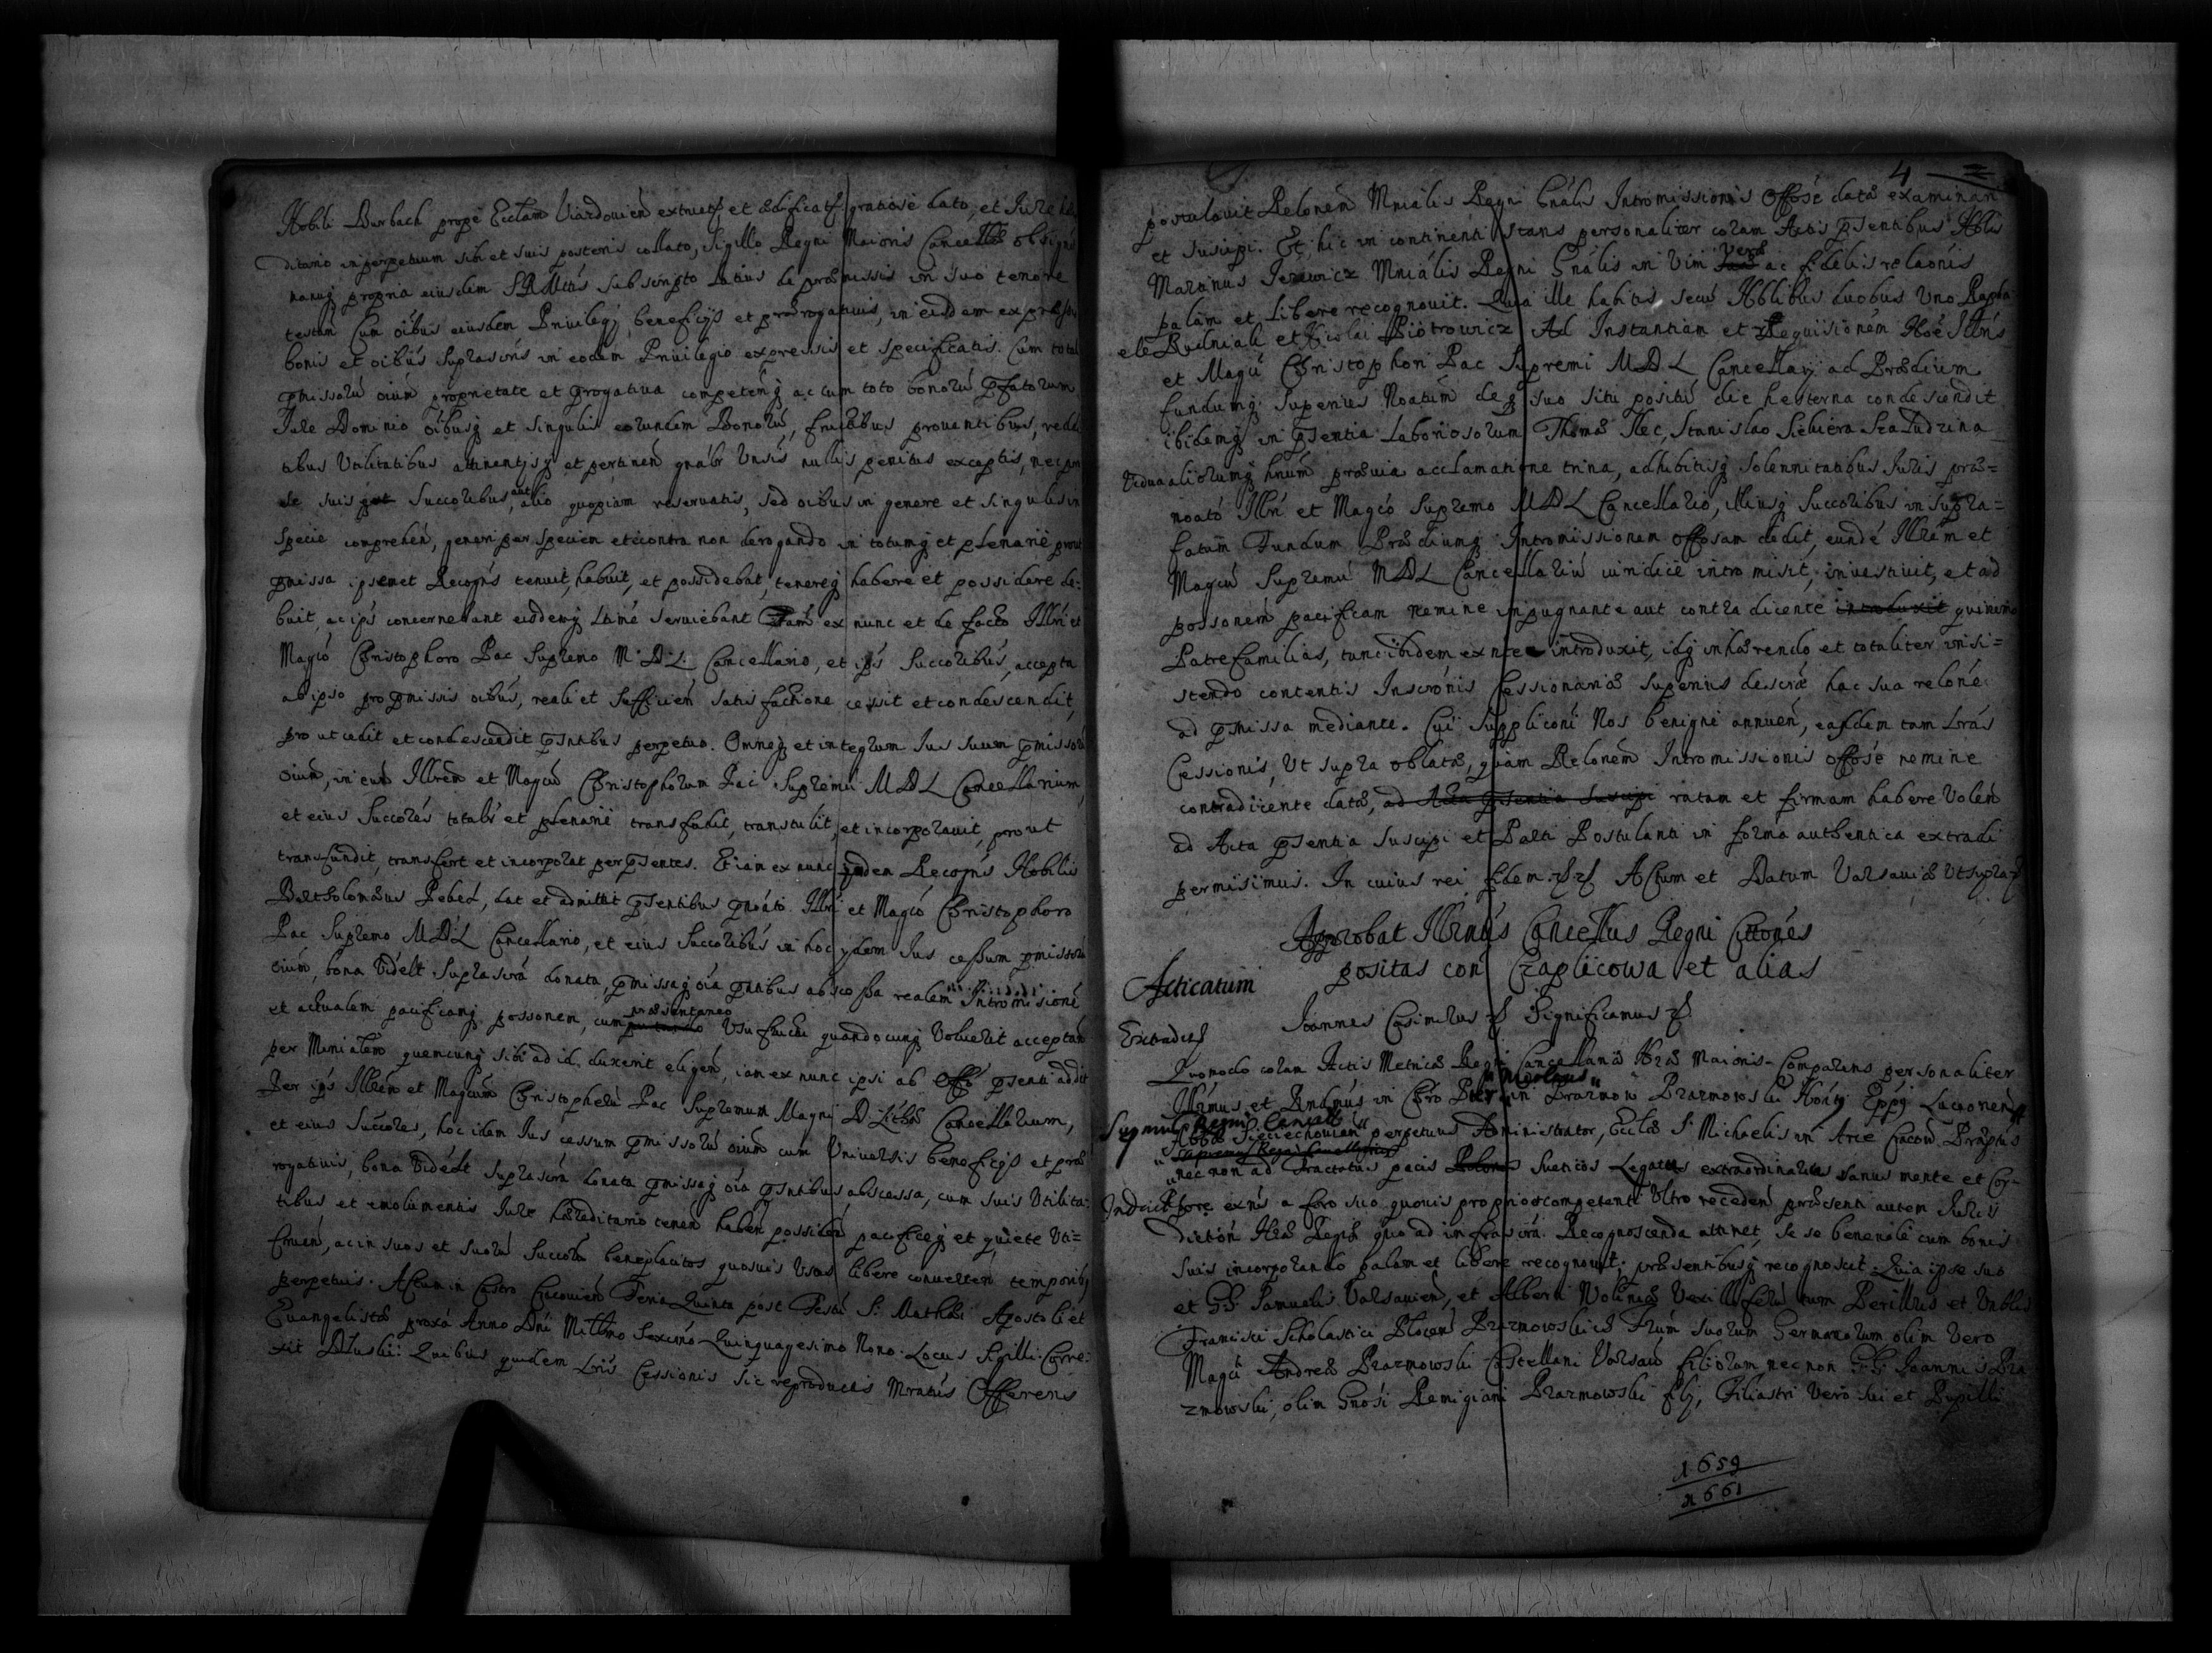 Nobili Durbach prope Ecclam Viazdovien extructs et ædificats gratiose dato, et Jure hæ
ditario in perpetuum sibi et suis posteris collato, Sigillo Regni Maioris Cancellæ obsign
manuq propria eiusdem SRMttis subscripto latius de præmissis in suo tenore
testan Cum oibus eiusdem Privilegij beneficijs et prærogativis, in eiusdem expressis
bonis et oibus suprascris in eodem Privilegio expressis et specificatis. Cum total
pmissoru oium proprietate et prrogativa competenq ac cum toto bonoru pfatorum
Jure Dominio oibusq et singulis eorundem Bonoru, fructibus proventibus, reddi
tibus Utilitatibus attinentijsq et pertinen gnalr Unisis nullis penitus exceptis, nec pro
se suis Succoribus, aut alio quopiam reservatis, sed oibus in genere et singulis in
specie comprehen, generi per speciem et econtra non derogando in totumq et plenarie prout
pmissa ipsemet Recogns tenuit, habuit, et possidebat, tenereq habere et possidere de:
buit, ac ips concernebant eidemq ltime serviebant iam ex nunc et de facto Illri et
Magco Christophoro Pac Supremo M. D. L. Cancellario, et ips Succoribus, accepta
ab ipso pro pmissis oibus, reali et sufficien satisfactione cessit et condescendit,
prout cedit et condescendit psntibus perpetuo. Omneq et integrum Jus suum pmissoru
oium, in eum Illrem et Magcum Christophorum Pac Supremu M D L Cancellarium,
et eius Succores totalr et plenarie transfudit, transtulit, et incorporavit, prout
transfundit, transfert et incorporat per psentes. Etiam ex nunc idem Recogns Nobilis
Bartholomæus Pebel, dat et admittit psentibus pnoato Illri et Magco Christophoro
Pac Supremo M D L Cancellario, et eius Succoribus in hoc idem Jus cessum pmissoru
oium, bona Videlt suprascra donata, pmissaq oia psntibus abscessa realem Intromissione
et actualem pacificamq possonem, cum præsentaneo Usufructu quandocunq Voluerit acceptan
per Mnialem quemcunq sibi ad id duxerit eligen, iam ex nunc ipsi ab Offo psenti addit
Per ips Illrem et Magcum Christopheru Pac Supremum Magni D Lithæ Cancellarium,
et eius Succores, hoc idem Jus cessum pmissoru oium cum Universis beneficijs et præ
rogativis, bona Videlt suprascra donata pmissaq oia psntibus abscessa, cum suis Utilita:
tibus et emolumentis Jure hæreditario tenen haben possiden pacificeq et quiete Uti=
fruen, ac in suos et suoru Succoru beneplacitos quosvis Usus libere converten temporibus
perpetuis. Actum in Castro Cracovien Feria Quinta post Festu S. Mathæi Apostoli et
Evangelistæ proxa Anno Dni Millmo Sexcmo Quinquagesimo Nono. Locus Sigilli. Corre:
xit Dluski: Quibus quidem Lris Cessionis sic reproductis Mratus Offerens

4
postulavit Relonem Mnialis Regni Gnalis Intromissionis Offose datæ examinari
et suscipi. Et hic in continenti stans personaliter coram Actis psentibus Nblis
Marinus Jerowicz Mnialis Regni Gnalis in Vim Veræ ac fidelis relaonis
palam et libere recognovit. Quia ille habitis secu Nblibus duobus Uno
et Nicolai Piotrowicz Ad Instantiam et Requisitionem Illris
et Magci Christophori Pac Supremi M D L Cancellarij ad Prædium
fundumq superius Noatum de suo situ positu die hesterna condescendit
ibidemq in psentia Laboriosorum Thomæ Stec, Stanislao
Vidua aliorumq hnum prævia acclamatione trina, adhibitisq solennitatibus Juris præ=
noato Illri et Magco Supremo M D L Cancellario, illiusq Succoribus in supra=
fatum Fundum Prædiumq Intromissionem offosam dedit, eunde Illrem et
Magcu Supremu M D L Cancellariu iuridice intromisit, investivit, et ad
possonem pacificam nemine impugnante aut contradicente introduxit quinimo
Patrefamilias, tunc ibidem ex nte introduxit, idq inhærendo et totaliter insi=
stendo contentis Inscronis Cessionariæ superius descræ hac sua relone
ad pmissa mediante. Cui suppliconi Nos benigne annuen, easdem tam Lras
Cessionis, Ut supra oblatas, quam Relonem Intromissionis offose nemine
contradicente datæ, ad Acta psentia suscipi ratam et firmam habere Volen
ad Acta psentia suscipi et Parti Postulanti in forma authentica extradi
permisimus. In cuius rei fidem Actum et Datum Varsaviæ Ut supra
Approbat Illrmus Cancellus Regni Cittones
positas con Czaplicowa et alias
Acticatum
Joannes Casimirus Significamus
Extradits
Quomodo coram Actis Metricæ Regni Cancellariæ Nræ Maioris Comparens personaliter
Nicolaus
Illrmus et Rndmus in Chro Pater in Prazmow Prazmowski Epps Luceorien
Supmus Regni Cancell
Abbæ Sieciechovien perpetuus Administrator, Ecclæ S. Michaelis in Arce Cracov Præptus
Supremus Regni Cancellarius
nec non ad Tractatus pacis Sueticos Legatus extraordinarius sanus mente et Cor-
pore exns a foro suo quovis proprio competenti Ultro receden præsenti autem Juris
diction Regiæ quo ad infrascra Recognoscenda attinet, se se bene cum bonis
suis incorporando palam et libere recognovit, præsentibusq recognoscit. Quia ipse suo
et GG. Samuelis Varsavien, et Alberti Volhniæ Vexilliferu tum Perillris et Rndi
Francisci Scholastici Plocen Prazmowskich Frum suorum Germanorum olim Vero
Magci Andreæ Prazmowski Castellani Varsav filiorum nec non GG. Joannis Pra
zmowski, olim Gnosi Remigiani Prazmowski filij, Filiastri Vero sui et Pupilli
1659
1661